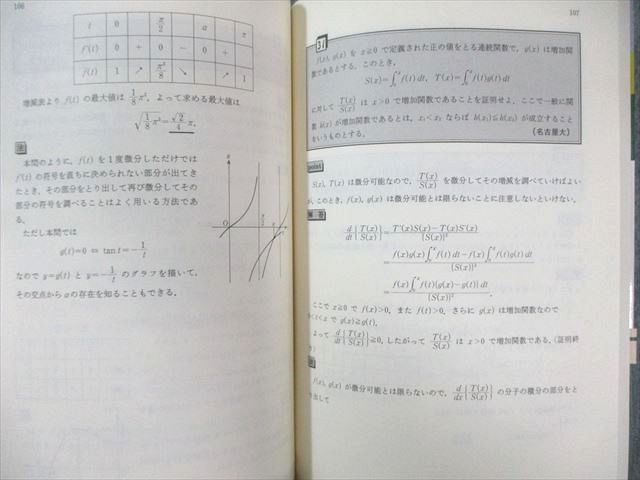 106
t 0 π/2 a π
f'(t) 0 + 0 − 0 +
f(t) 1 ↗ π²/8 ↘ ↗ 1
増減表より f(t) の最大値は 1/8 π², よって求める最大値は
√(1/8 π²) = √2/4 π.
注
本問のように, f(t) を1度微分しただけでは
f'(t) の符号を直ちに決められない部分が出てき
たとき, その部分をとり出して再び微分してその
部分の符号を調べることはよく用いる方法であ
る.
ただし本問では
g(t)=0 ⇔ tan t = −1/t
なので y=g(t) と y=−1/t のグラフを描いて,
その交点から a の存在を知ることもできる.
107
31
f(x), g(x) を x≧0 で定義された正の値をとる連続関数で, g(x) は増加関
数であるとする. このとき,
S(x)=∫₀ˣ f(t)dt, T(x)=∫₀ˣ f(t)g(t)dt
に対して T(x)/S(x) は x>0 で増加関数であることを証明せよ. ここで一般に関
数 h(x) が増加関数であるとは, x₁<x₂ ならば h(x₁)≦h(x₂) が成立すること
をいうものとする.
(名古屋大)
point
S(x), T(x) は微分可能なので, T(x)/S(x) を微分してその増減を調べていけばよい
が, このとき, f(x), g(x) は微分可能とは限らないことに注意しないといけない.
解 答
d/dt{T(x)/S(x)} = (T'(x)S(x)−T(x)S'(x))/{S(x)}²
= (f(x)g(x)∫₀ˣ f(t)dt−f(x)∫₀ˣ f(t)g(t)dt)/{S(x)}²
= (f(x)∫₀ˣ f(t){g(x)−g(t)}dt)/{S(x)}².
ここで x≧0 で f(x)>0, また f(t)>0, さらに g(x) は増加関数なので
0<t<x で g(x)≧g(t),
よって d/dt{T(x)/S(x)}≧0, したがって T(x)/S(x) は x>0 で増加関数である. (証明終
f(x), g(x) が微分可能とは限らないので, d/dx{T(x)/S(x)} の分子の積分の部分をと
り出して